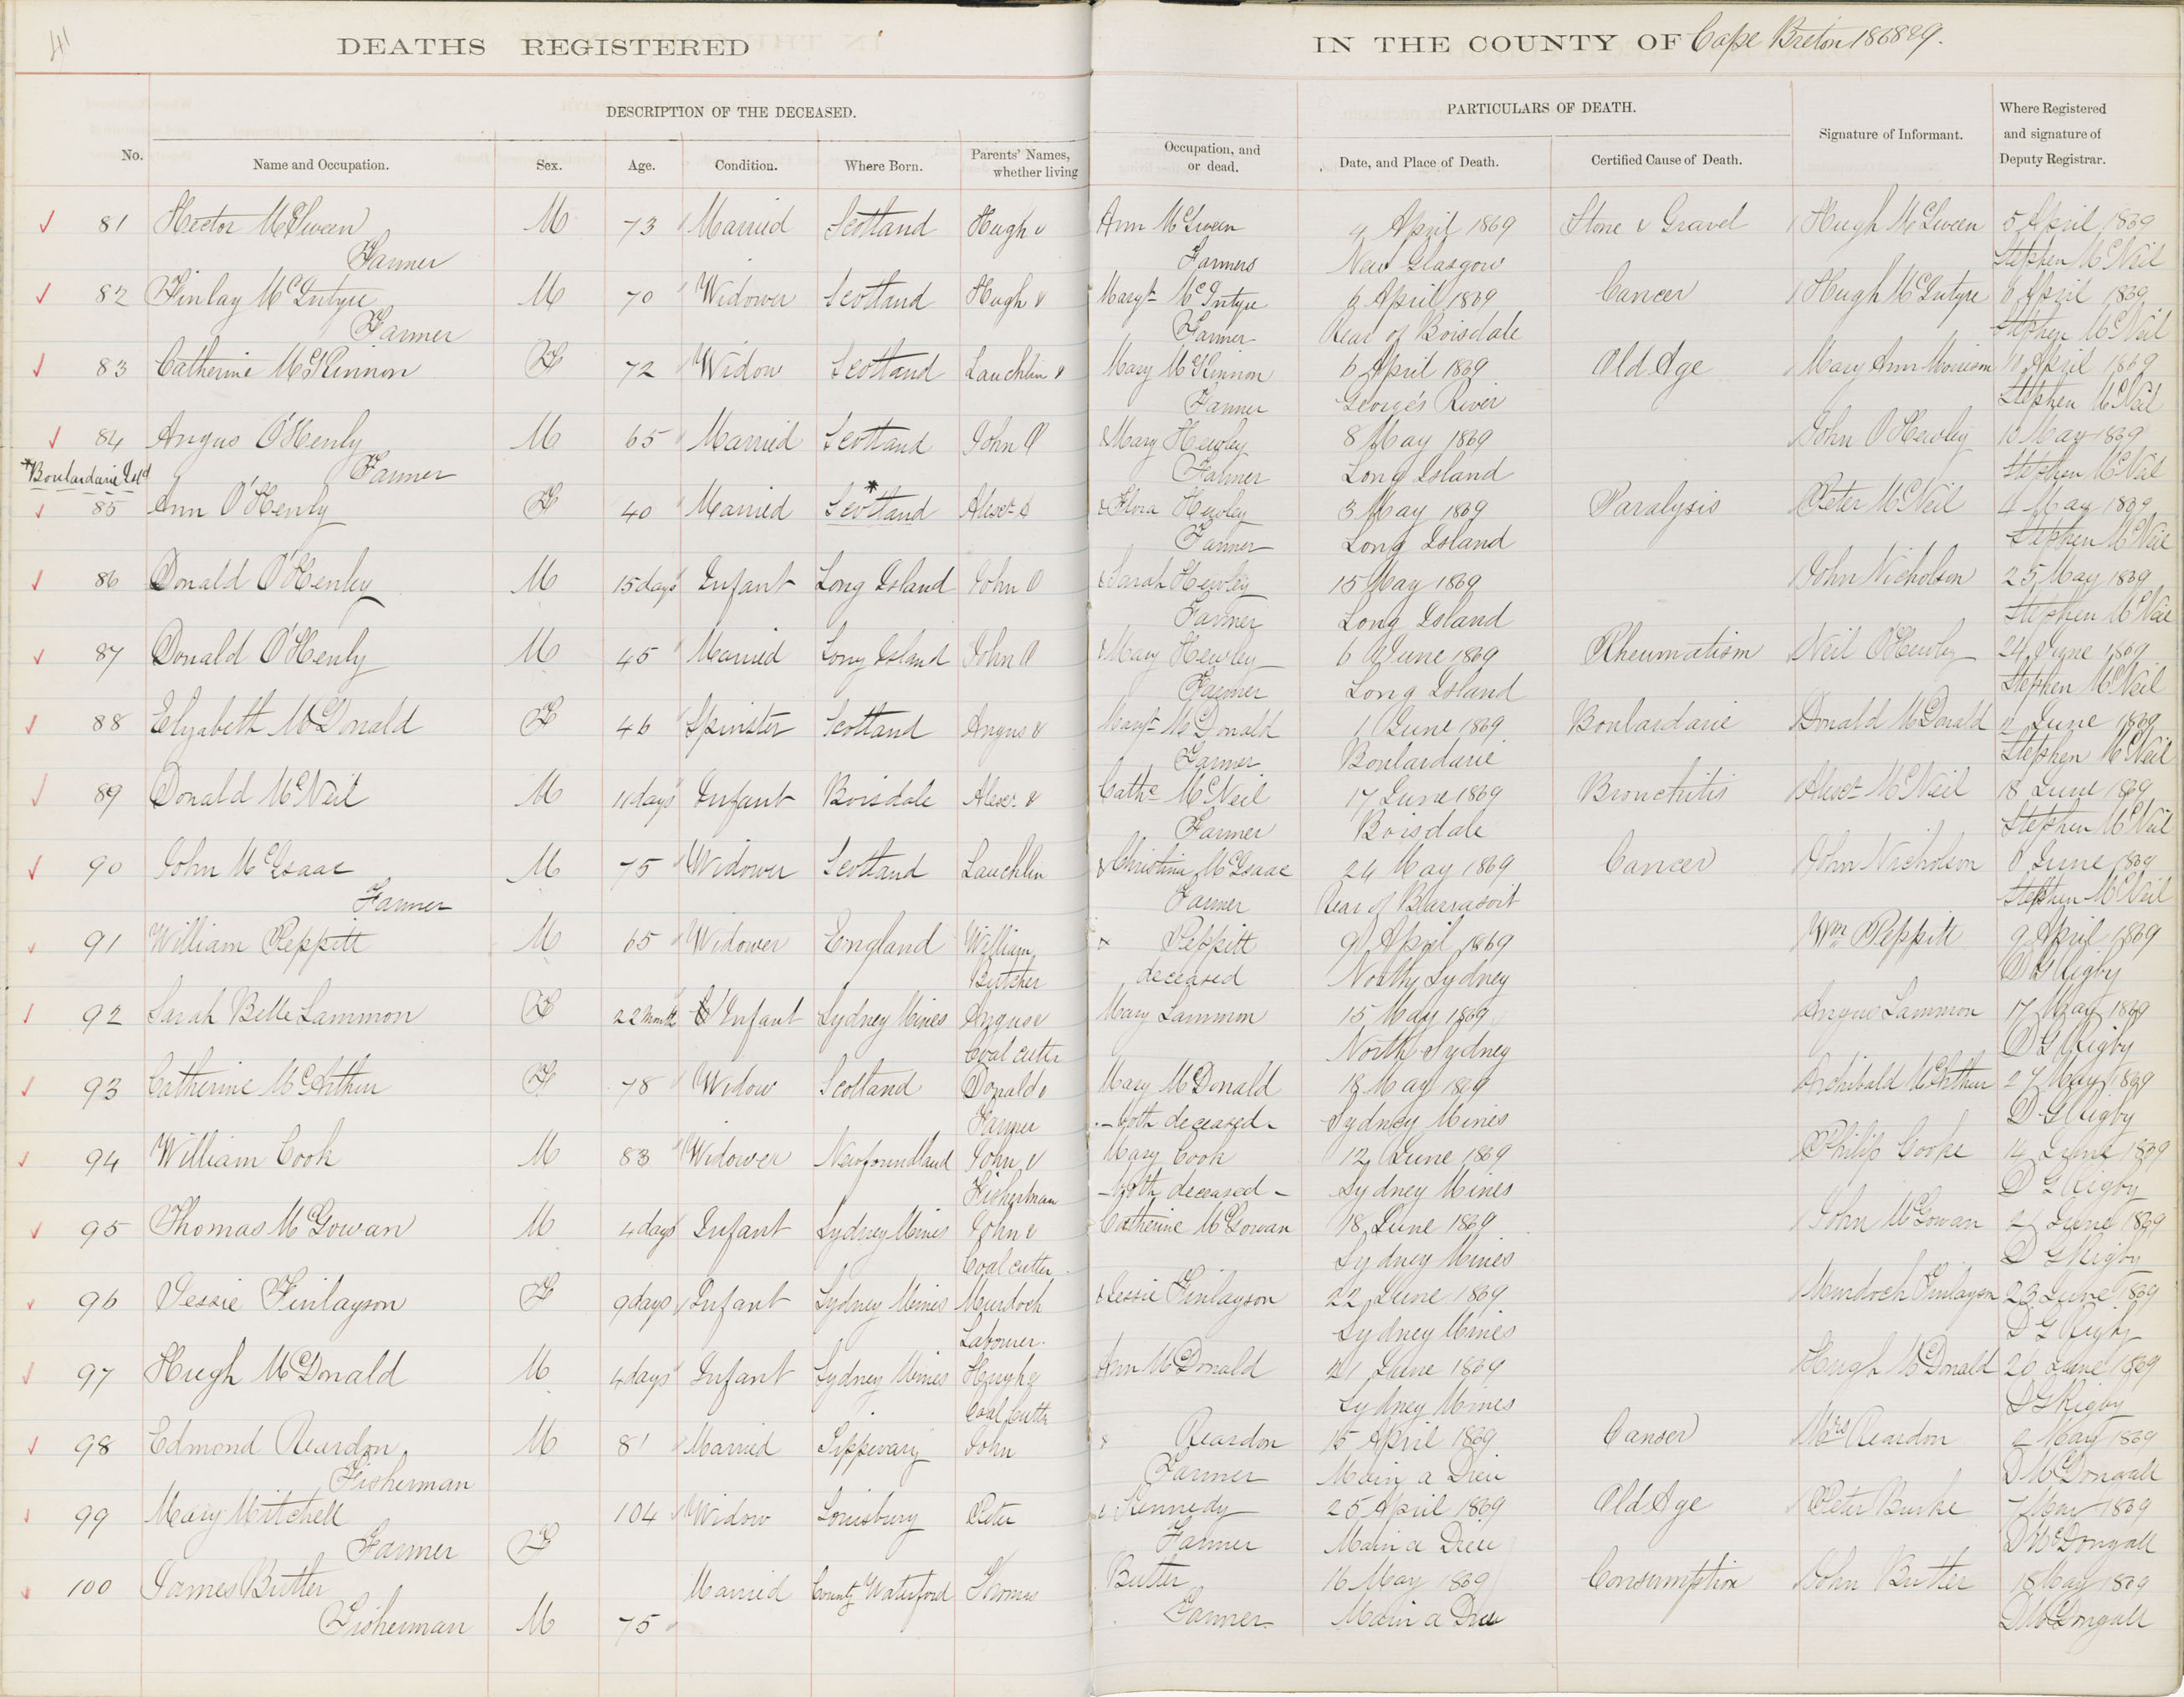 41
DEATHS REGISTERED IN THE COUNTY OF Cape Breton 1868 & 9.
DESCRIPTION OF THE DECEASED. PARTICULARS OF DEATH.
No. Name and Occupation. Sex. Age. Condition. Where Born. Parents' Names, whether living Occupation, and or dead. Date, and Place of Death. Certified Cause of Death. Signature of Informant. Where Registered and signature of Deputy Registrar.
81 Hector McSween M 73 Married Scotland Hugh & Ann McSween April 1869 Stone & Gravel Hugh McSween 5 April 1869
Farmer Farmers New Glasgow Stephen McNeil
82 Finlay McIntyre M 70 Widower Scotland Hugh & Margt McIntyre 6 April 1869 Cancer Hugh McIntyre April 1869
Farmer Farmer Rear of Boisdale Stephen McNeil
83 Catherine McKinnon F 72 Widow Scotland Lauchlin & Mary McKinnon 6 April 1869 Old Age Mary Ann Morrison 10 April 1869
Farmer George's River Stephen McNeil
84 Angus O'Henly M 65 Married Scotland John O' & Mary Henley 8 May 1869 John O'Henley 10 May 1869
*Boulardarie Isld Farmer Farmer Long Island Stephen McNeil
85 Ann O'Henly F 40 Married Scotland * Alexr & Flora Henley 3 May 1869 Paralysis Peter McNeil 4 May 1869
Farmer Long Island Stephen McNeil
86 Donald O'Henley M 15 days Infant Long Island John O & Sarah Henley 15 May 1869 John Nicholson 25 May 1869
Farmer Long Island Stephen McNeil
87 Donald O'Henly M 45 Married Long Island John O & Mary Henley 6 June 1869 Rheumatism Neil O'Henley 24 June 1869
Farmer Long Island Stephen McNeil
88 Elizabeth McDonald F 46 Spinster Scotland Angus & Margt McDonald 1 June 1869 Boulardarie Donald McDonald 2 June 1869
Farmer Boulardarie Stephen McNeil
89 Donald McNeil M 11 days Infant Boisdale Alexr & Cathe McNeil 17 June 1869 Bronchitis Alexr McNeil 18 June 1869
Farmer Boisdale Stephen McNeil
90 John McIsaac M 75 Widower Scotland Lauchlin & Christina McIsaac 24 May 1869 Cancer John Nicholson June 1869
Farmer Farmer Rear of Stephen McNeil
91 William Peppitt M 65 Widower England William & Peppitt 9 April 1869 Wm Peppitt 9 April 1869
Butcher deceased North Sydney D G Rigby
92 Sarah Belle Lammon F 22 months Infant Sydney Mines Angus & Mary Lammon 15 May 1869 Angus Lammon 17 May 1869
Coal cutter North Sydney D G Rigby
93 Catherine McArthur F 78 Widow Scotland Donald & Mary McDonald 18 May 1869 Archibald McArthur 27 May 1869
Farmer - both deceased - Sydney Mines D G Rigby
94 William Cook M 83 Widower Newfoundland John & Mary Cook 12 June 1869 Philip Cooke 14 June 1869
Fisherman - both deceased - Sydney Mines D G Rigby
95 Thomas McGowan M 4 days Infant Sydney Mines John & Catherine McGowan 18 June 1869 John McGowan 21 June 1869
Coal cutter Sydney Mines D G Rigby
96 Jessie Finlayson F 9 days Infant Sydney Mines Murdoch & Jessie Finlayson 22 June 1869 Murdoch Finlayson 23 June 1869
Labourer Sydney Mines D G Rigby
97 Hugh McDonald M 4 days Infant Sydney Mines Hugh & Ann McDonald 21 June 1869 Hugh McDonald 26 June 1869
Coal Cutter Sydney Mines D G Rigby
98 Edmond Reardon M 81 Married Tipperary John & Reardon 15 April 1869 Canser Mrs Reardon 2 May 1869
Fisherman Farmer Main a Dieu D McDongall
99 Mary Mitchell F 104 Widow Louisburg Peter & Kennedy 25 April 1869 Old Age Peter Burke 7 May 1869
Farmer Farmer Main a Dieu D McDongall
100 James Butler Married County Waterford Thomas Butler 16 May 1869 Consumption John Butler 18 May 1869
Fisherman M 75 Farmer Main a Dieu D McDongall